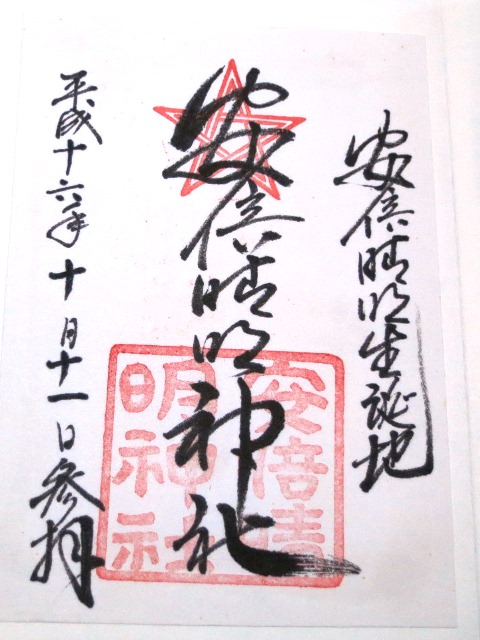 安倍晴明生誕地
安倍晴明神社
平成十六年十月十一日参拝
安倍晴
明神社